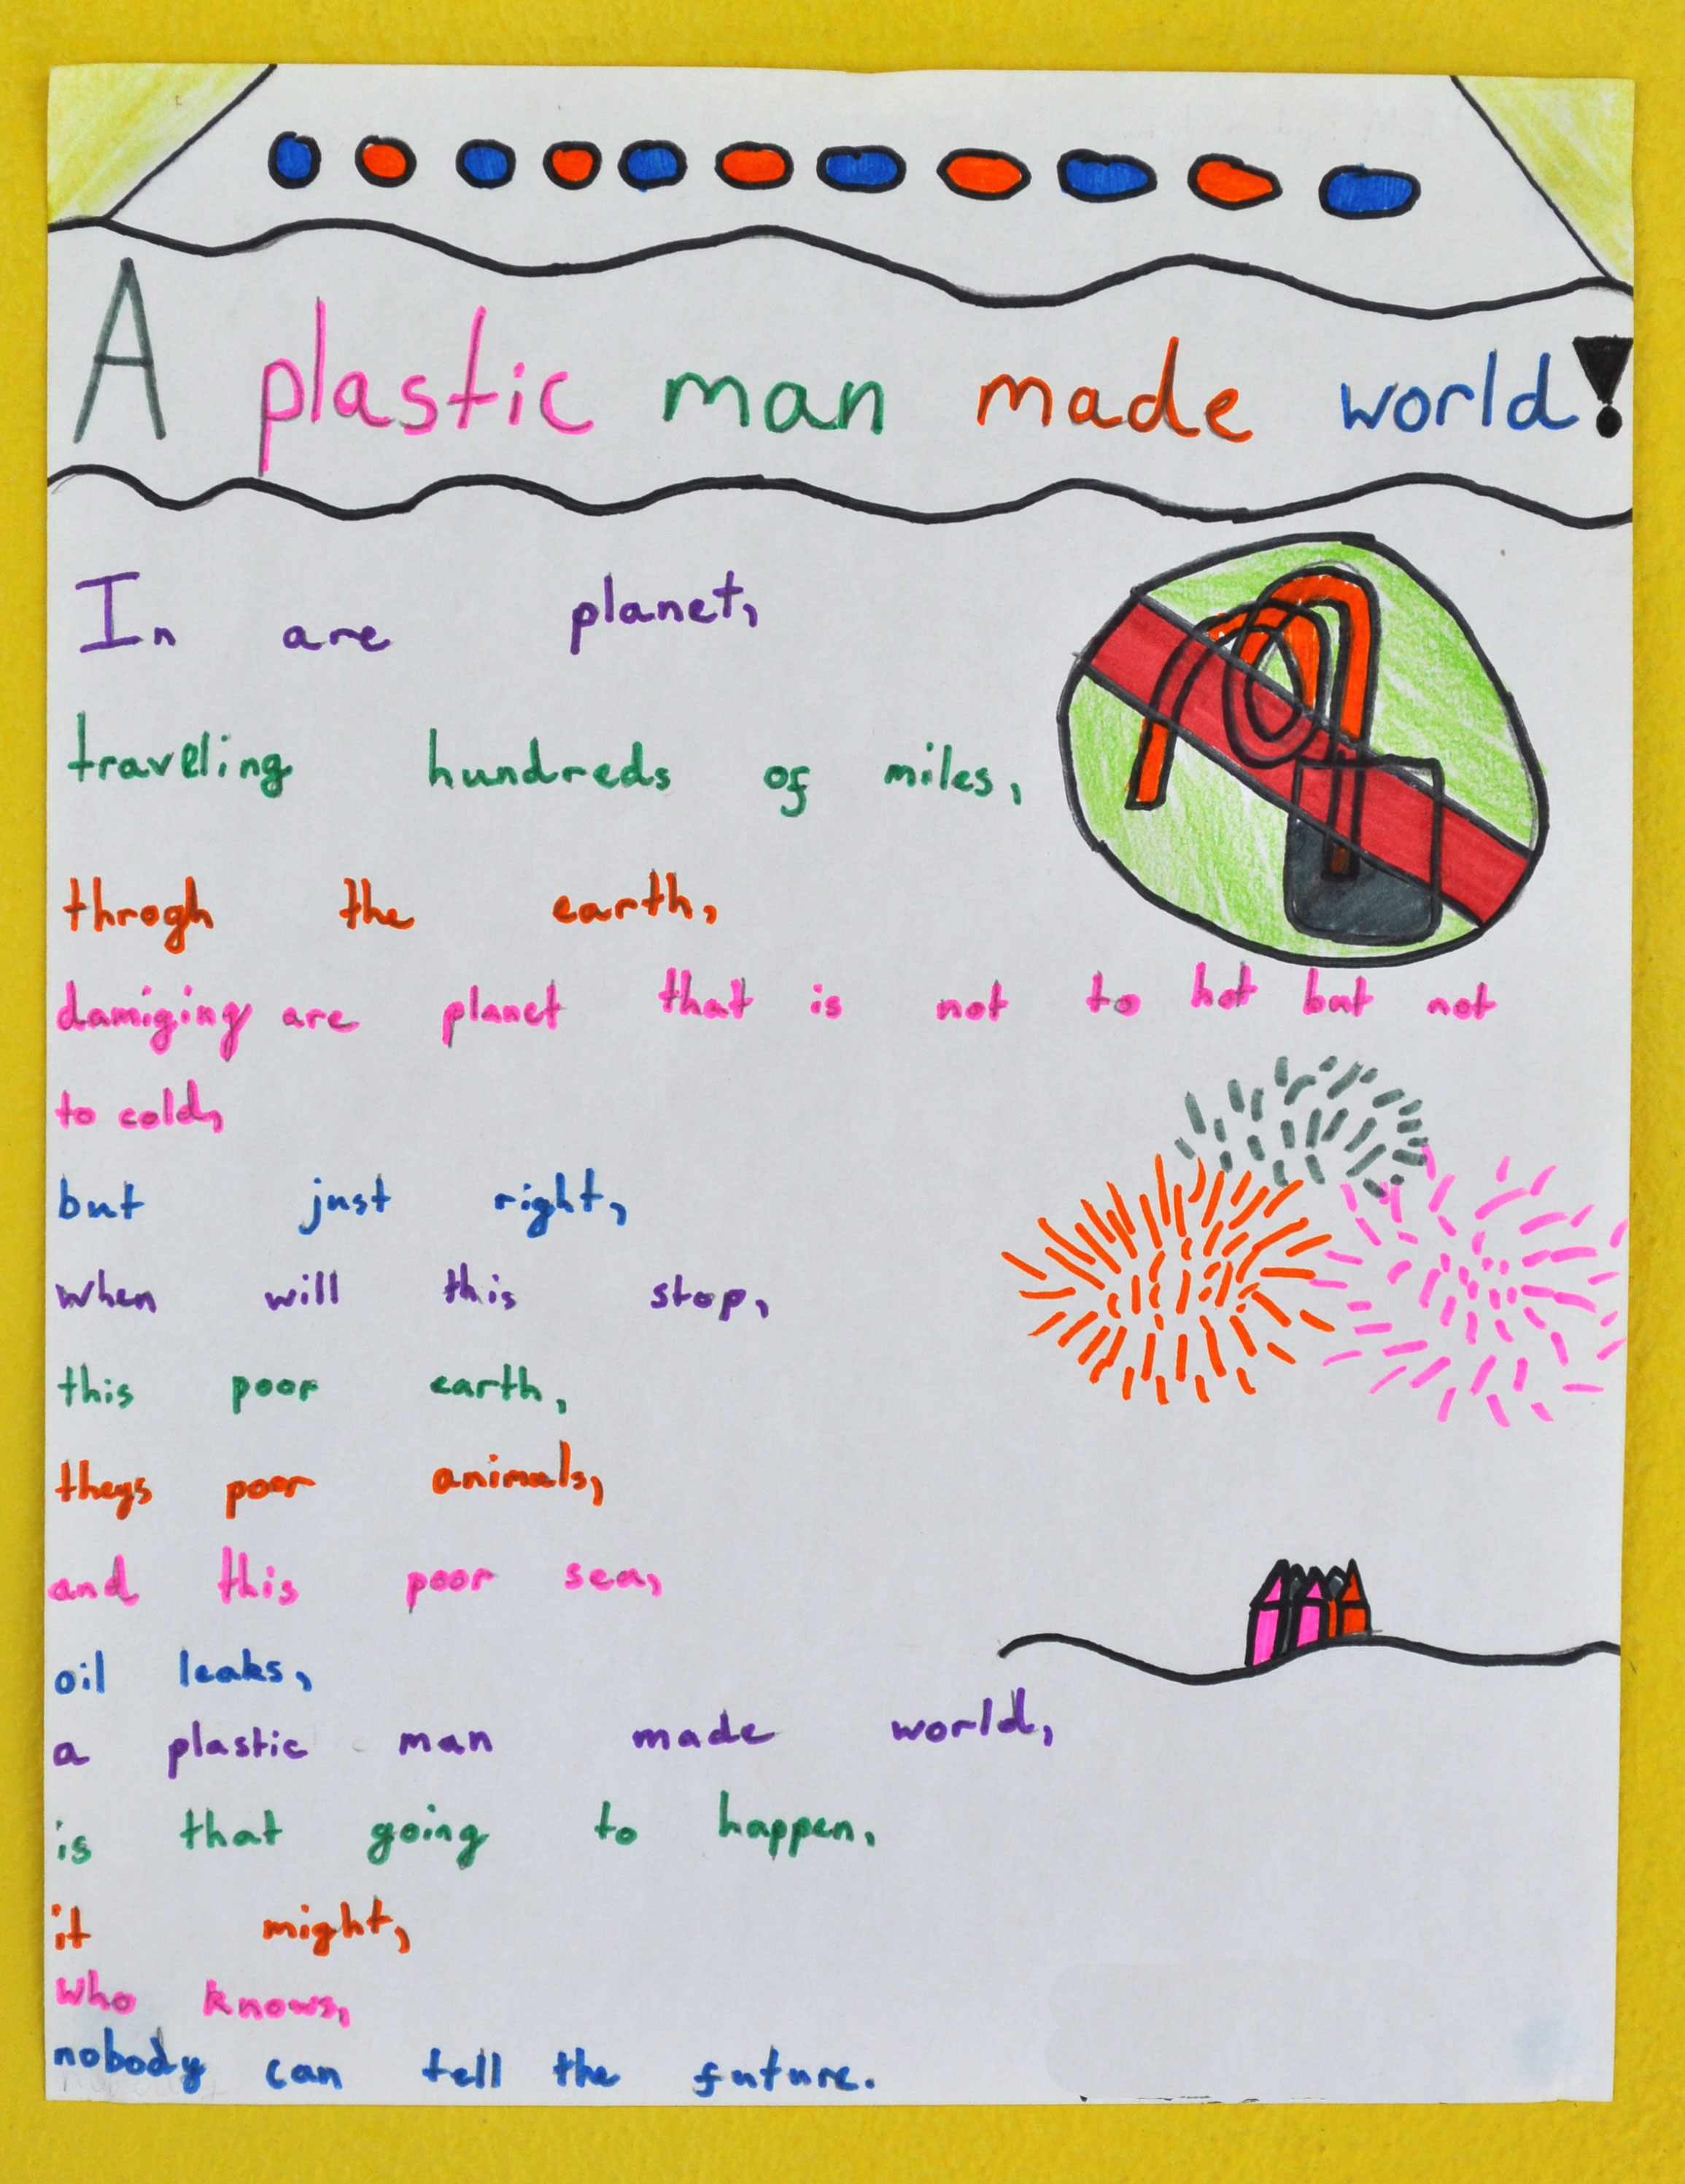 A plastic man made world!
In are planet,
traveling hundreds of miles,
throgh the earth,
damiging are planet that is not to hot but not
to cold,
but just right,
when will this stop,
this poor earth,
theys poor animals,
and this poor sea,
oil leaks,
a plastic man made world,
is that going to happen,
it might,
who knows,
nobody can tell the future.